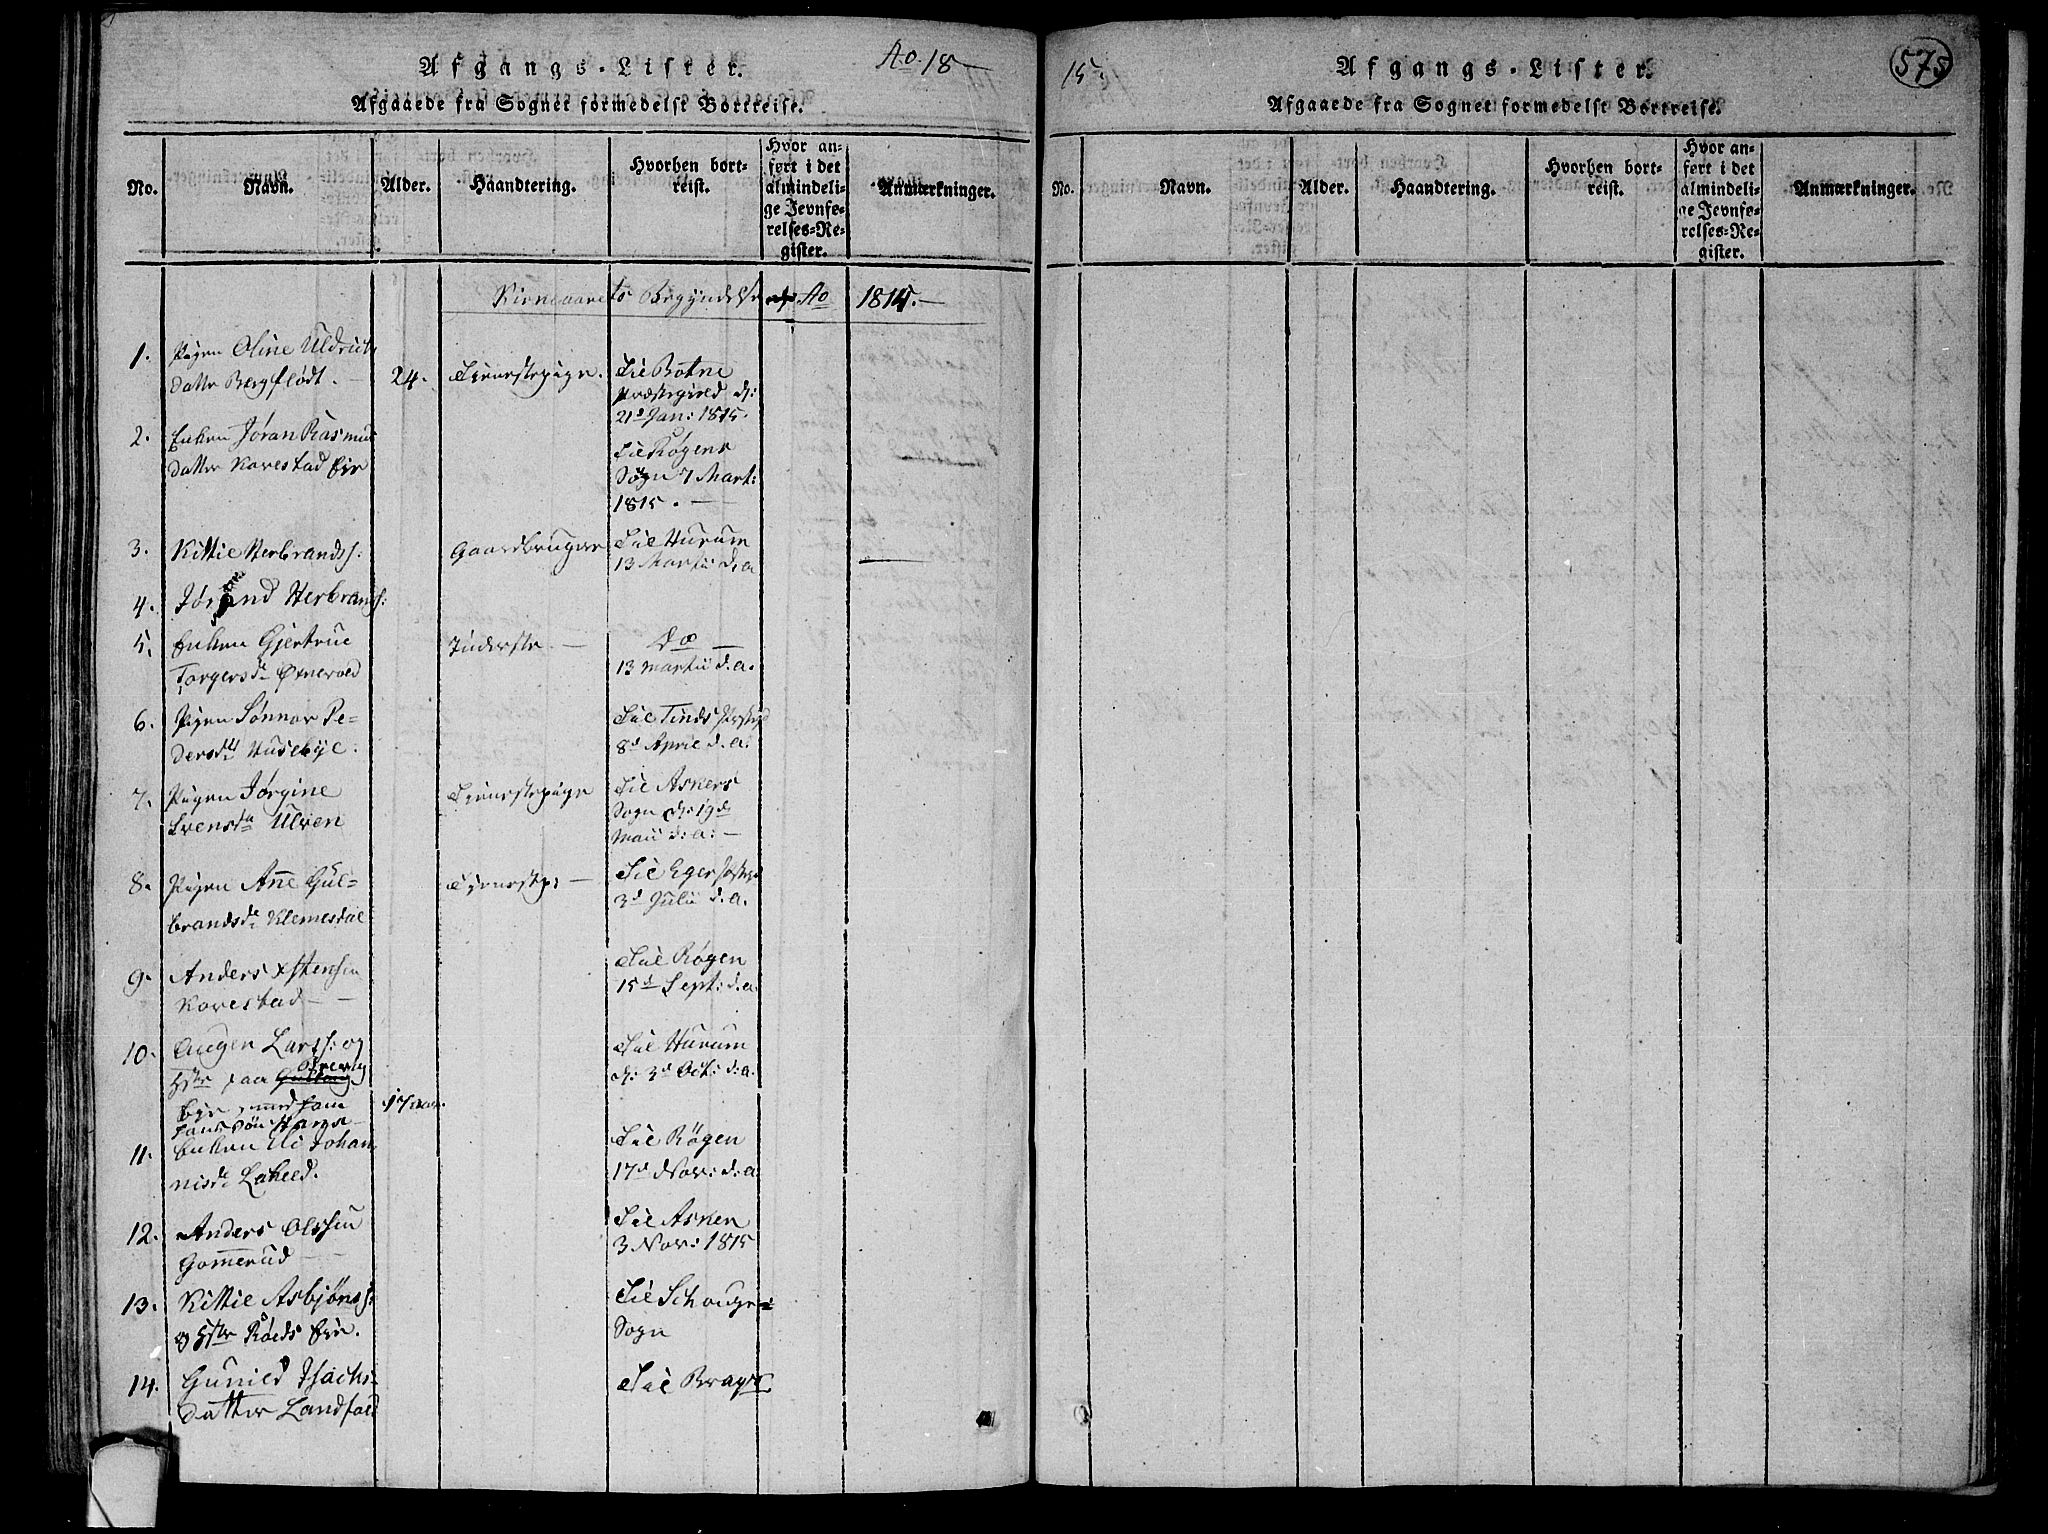 Afgangs-Lister.
Ao. 18
Afgaaede fra Sognet formedelst Bortreise.
No.
Navn.
Alder.
Haandtering.
Hvorhen bort-
reist.
Hvor an-
ført i det
almindeli-
ge Jevnfø-
relses-Re-
gister.
Anmærkninger.
Kirkeaarets Begyndelse Ao 1814.
1.
Pigen Oline Uldrichs
datter Bergflødt.
24.
Tienestepige.
Til Botne
Præstegield d:
21d Jan: 1815.
2.
Enken Jøran Rasmus
datter Korestad Eie
Til Røgens
Sogn 7 Mart:
1815.
3.
Kittil Herbrandss:
Gaardbruger
Til Hurum
13 Martii d. a
4.
Herbrands:
5.
Enken Gjertrue
Torgersdr Ørnevold
Inderste.
do
13 Martii d. a.
6.
Pigen Gønnor Pe-
dersdtr Husebye.
Til Tinds
8d April d. a:
7.
Pigen Jørgine
Svensdr Ulven
Tienestepige
Til Askers
Sogn d: 19de
Maii d: a:
8.
Pigen Anne Gul-
brandsdr Klemestal
Tieneste:
Til Eger
3d Julii d. a.
9.
Anders
Korestad
Til Røgen
15d Sept: d. a.
10.
Augen Larss: og
paa Gullaug
Eie, med
17
Til Hurum
d: 3d Oct: d: a.
11.
Enken Johan
nisdr Laheld.
Til Røgen
17d Nov: d: a
12.
Anders Olssen
Gommerud
Til Asker
3 Nov: 1815
13.
Kittil Asbjønss:
og Røeds Eie.
Til Schouger
Sogn
14.
Gunild Isachs
datter Landfald
Til Brager
15
Afgangs-Lister.
575
Afgaaede fra Sognet formedelst Bortreise.
No.
Navn.
Alder.
Haandtering.
Hvorhen bort-
reist.
Hvor an-
ført i det
almindeli-
ge Jevnfø-
relses-Re-
gister.
Anmærkninger.